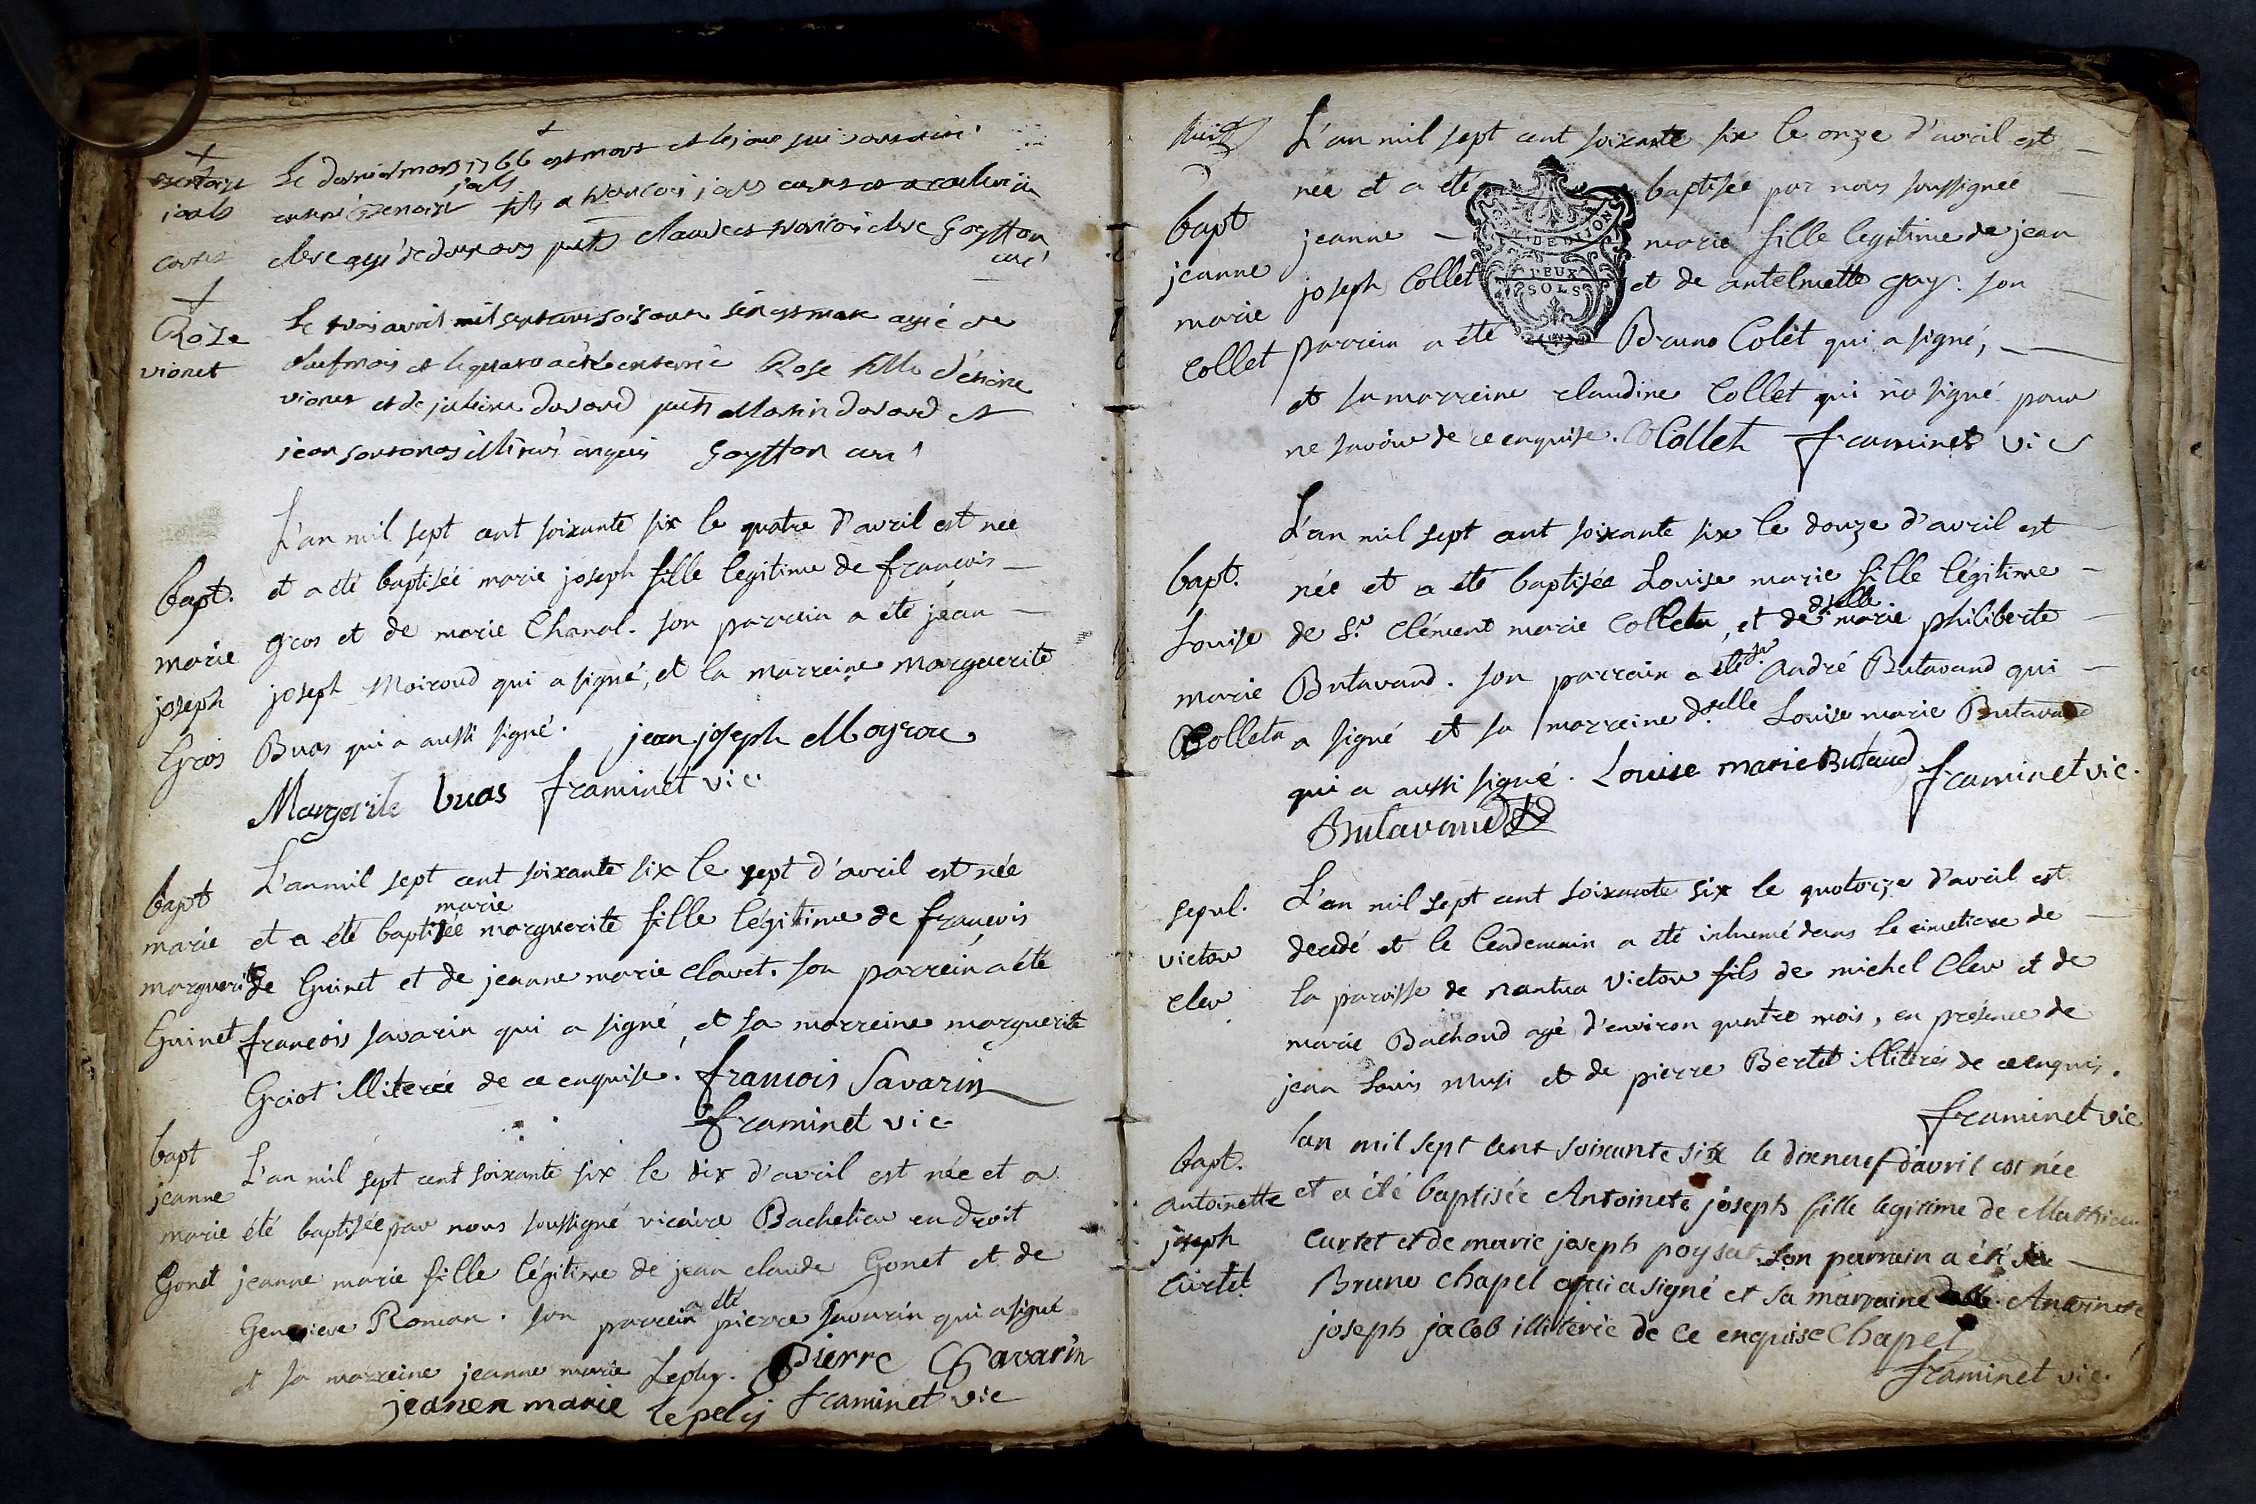 Le dernier mars 1766 est mort et le jour sui
jals
fils a francoi jals
clerc agé de deux ans puts claude et francoi clerc Goytton
curé
Roze
vionet
Le trois avril mil sept cens soisante six est morte agée de
neuf mois et le quatre a été enterrée Rose fille d'étiene
vionet et de juliene dusurd puts Martin dusurd et
jean illiterés enquis Goytton curé
bapt.
marie
joseph
Gros
L'an mil sept cent soixante six le quatre d'avril est née
et a été baptisée marie joseph fille legitime de françois
gros et de marie Chanal. son parrein a été jean
joseph Moiroud qui a signé, et la marreine marguerite
Buas qui a aussi signé. jean joseph Moyrou
Margerite buas framinet vic.
bapt
marie
marguerite
Guinet
L'an mil sept cent soixante six le sept d'avril est née
marie
et a été baptisée marguerite fille légitime de françois
de Guinet et de jeanne marie Clavet. son parrein a été
françois savarin qui a signé, et sa marreine marguerite
Griot illiterée de ce enquise. francois Savarin
framinet vic
bapt
jeanne
marie
Gonet
L'an mil sept cent soixante six le dix d'avril est née et a
été baptisée par nous soussigné vicaire Bachelier en droit
jeanne marie fille légitime de jean claude Gonet et de
Genevieve Roman. son parrein a été pierre savarin qui a signé
et sa marreine jeanne marie Lepely. Pierre Savarin
jeanen marie lepely framinet vic
huit
bapt
jeanne
marie
Collet
L'an mil sept cent soixante six le onze d'avril est
née et a été baptisée par nous soussignée
jeanne marie fille legitime de jean
joseph Collet et de antelmette gay. son
parrein a été Bruno Colet qui a signé,
et sa marreine claudine Collet qui n'a signé pour
ne savoir de ce enquise. Collet framinet vic
GEN. DE DIJON
DEUX
SOLS
bapt.
Louise
marie
Colleta
L'an mil sept cent soixante six le douze d'avril est
née et a été baptisée Louise marie fille légitime
de Sr. Clément marie Colleta, et de dselle marie philiberte
Butavand. son parrain a été sr André Butavand qui
a signé et sa marreine dselle Louise marie Butavand
qui a aussi signé. Louise marie Butaud framinet vic.
Butavand
sepul.
victor
cler
L'an mil sept cent soixante six le quatorze d'avril est
decedé et le lendemain a été inhumé dans le cimetiere de
la paroisse de nantua victor fils de michel Cler et de
marie Bachoud agé d'environ quatre mois, en présence de
jean Louis musi et de pierre Bertet illiterés de ce enquis.
framinet vic
bapt.
antoinette
joseph
curtet
lan mil sept cent soixante six le dixneuf d'avril est née
et a été baptisée Antoinete joseph fille legitime de Mathieu
Curtet et de marie joseph poysat son parrain a été
Bruno Chapel qui a signé et sa marraine Antoinete
joseph jacob illiterée de ce enquise Chapel
framinet vic.